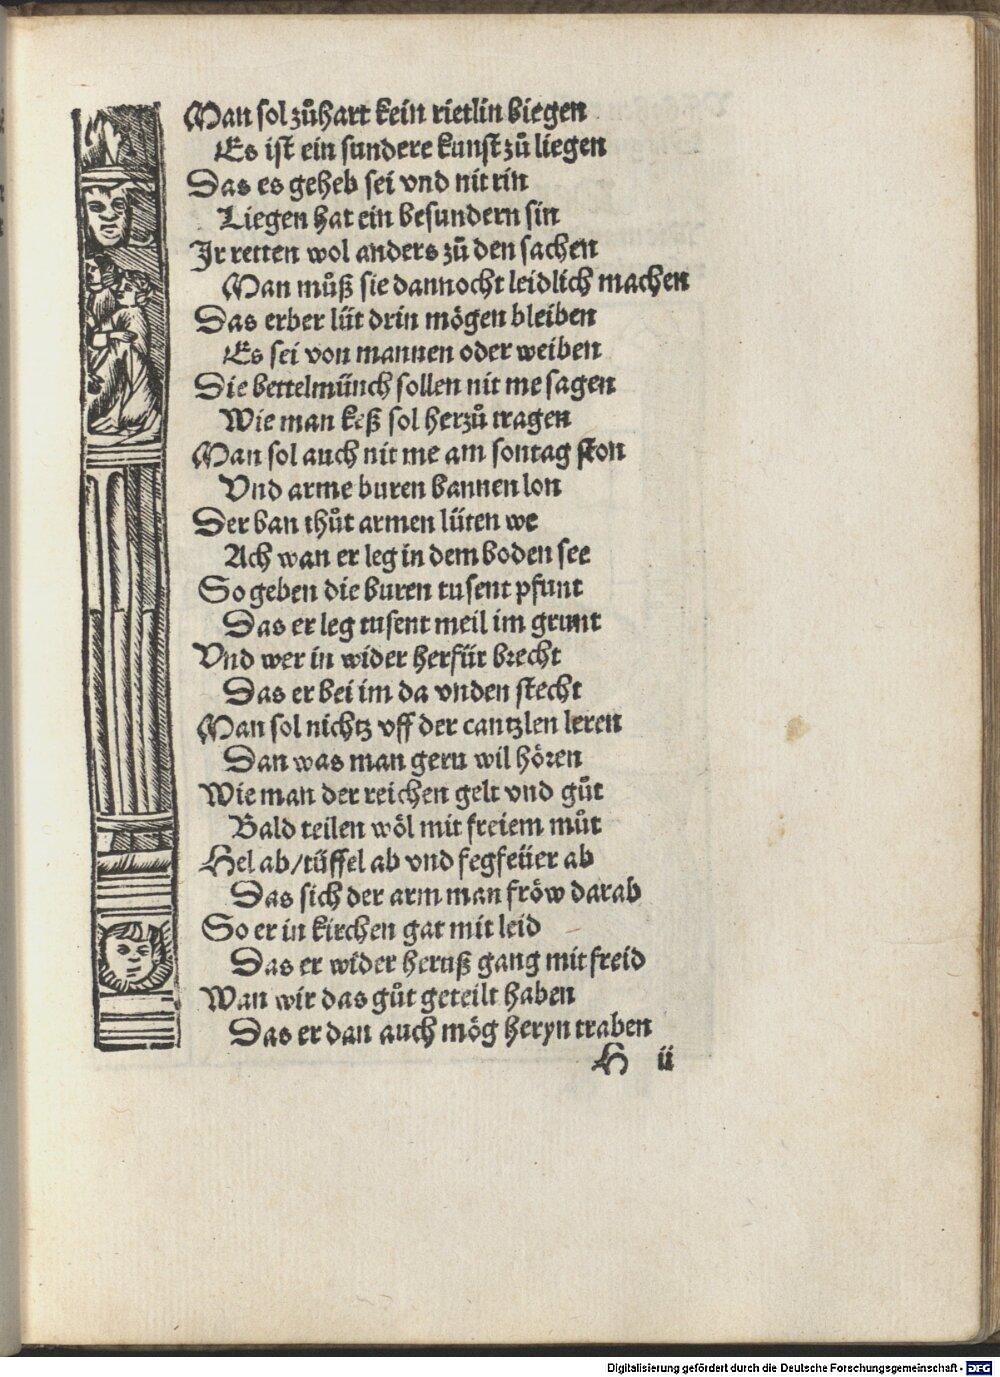 Man sol zůhart kein rietlin biegen
Es ist ein sundere kunst zů liegen
Das es geheb sei vnd nit rin
Liegen hat ein besundern sin
Ir retten wol anders zů den sachen
Man můß sie dannocht leidlich machen
Das erber lüt drin mögen bleiben
Es sei von mannen oder weiben
Die bettelmünch sollen nit me sagen
Wie man keß sol herzů tragen
Man sol auch nit me am sontag ston
Vnd arme buren bannen lon
Der ban thůt armen lüten we
Ach wan er leg in dem boden see
So geben die buren tusent pfunt
Das er leg tusent meil im grunt
Vnd wer in wider herfür brecht
Das er bei im da vnden stecht
Man sol nichtz vff der cantzlen leren
Dan was man gern wil hören
Wie man der reichen gelt vnd gůt
Bald teilen wöl mit freiem můt
Hel ab/tüffel ab vnd fegfeüer ab
Das sich der arm man fröw darab
So er in kirchen gat mit leid
Das er wider heruß gang mit freid
Wan wir das gůt geteilt haben
Das er dan auch mög heryn traben
H ii
Digitalisierung gefördert durch die Deutsche Forschungsgemeinschaft - DFG